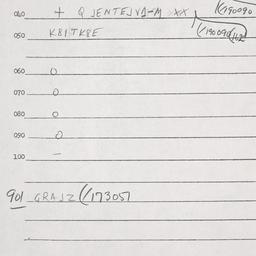 040 + Q JENTEJVA-M XX (190090
050 K81TK8E (190090/102
060 O
070 O
080 O
090 O
100 —
901 GRAJZ (173051